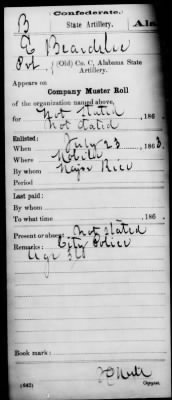 Confederate.
B State Artillery. Ala
E Beardslee
Pvt. (Old) Co. C, Alabama State
Artillery.
Appears on
Company Muster Roll
of the organization named above,
for Not stated , 186 .
Not dated
Enlisted:
When July 23 , 186 3.
Where Mobile
By whom Major Rice
Period
Last paid:
By whom
To what time , 186 .
Present or absent Not stated
Remarks: City Police
Age 39
Book mark:
(642) Copyist.